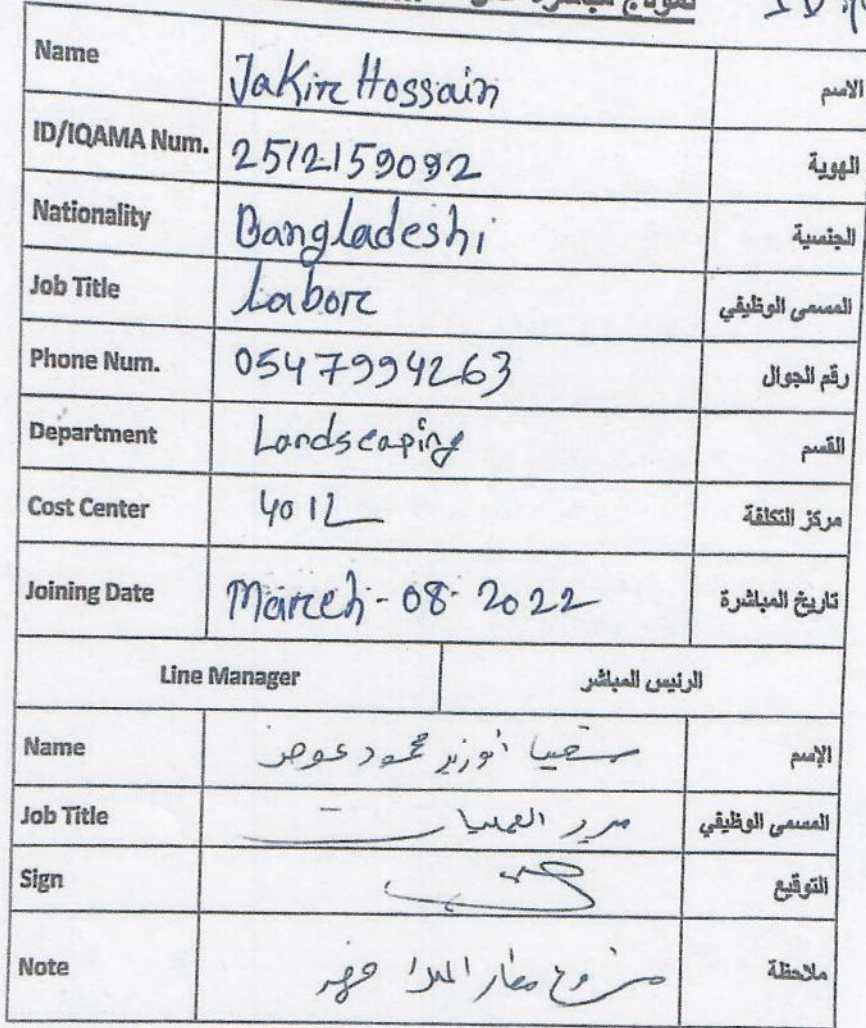 نموذج مباشرة
Name Jakir Hossain الاسم
ID/IQAMA Num. 2512159092 الهوية
Nationality Bangladeshi الجنسية
Job Title Labor المسمى الوظيفي
Phone Num. 0547994263 رقم الجوال
Department Landscaping القسم
Cost Center 4012 مركز التكلفة
Joining Date March-08-2022 تاريخ المباشرة
Line Manager الرئيس المباشر
Name أبوزيد محمود عوض الإسم
Job Title مدير العمليات المسمى الوظيفي
Sign التوقيع
Note مطار الملك فهد ملاحظة